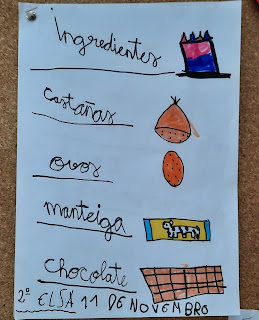 Ingredientes
Castañas
ovos
manteiga
chocolate
2º ELSA 11 DE NOVEMBRO